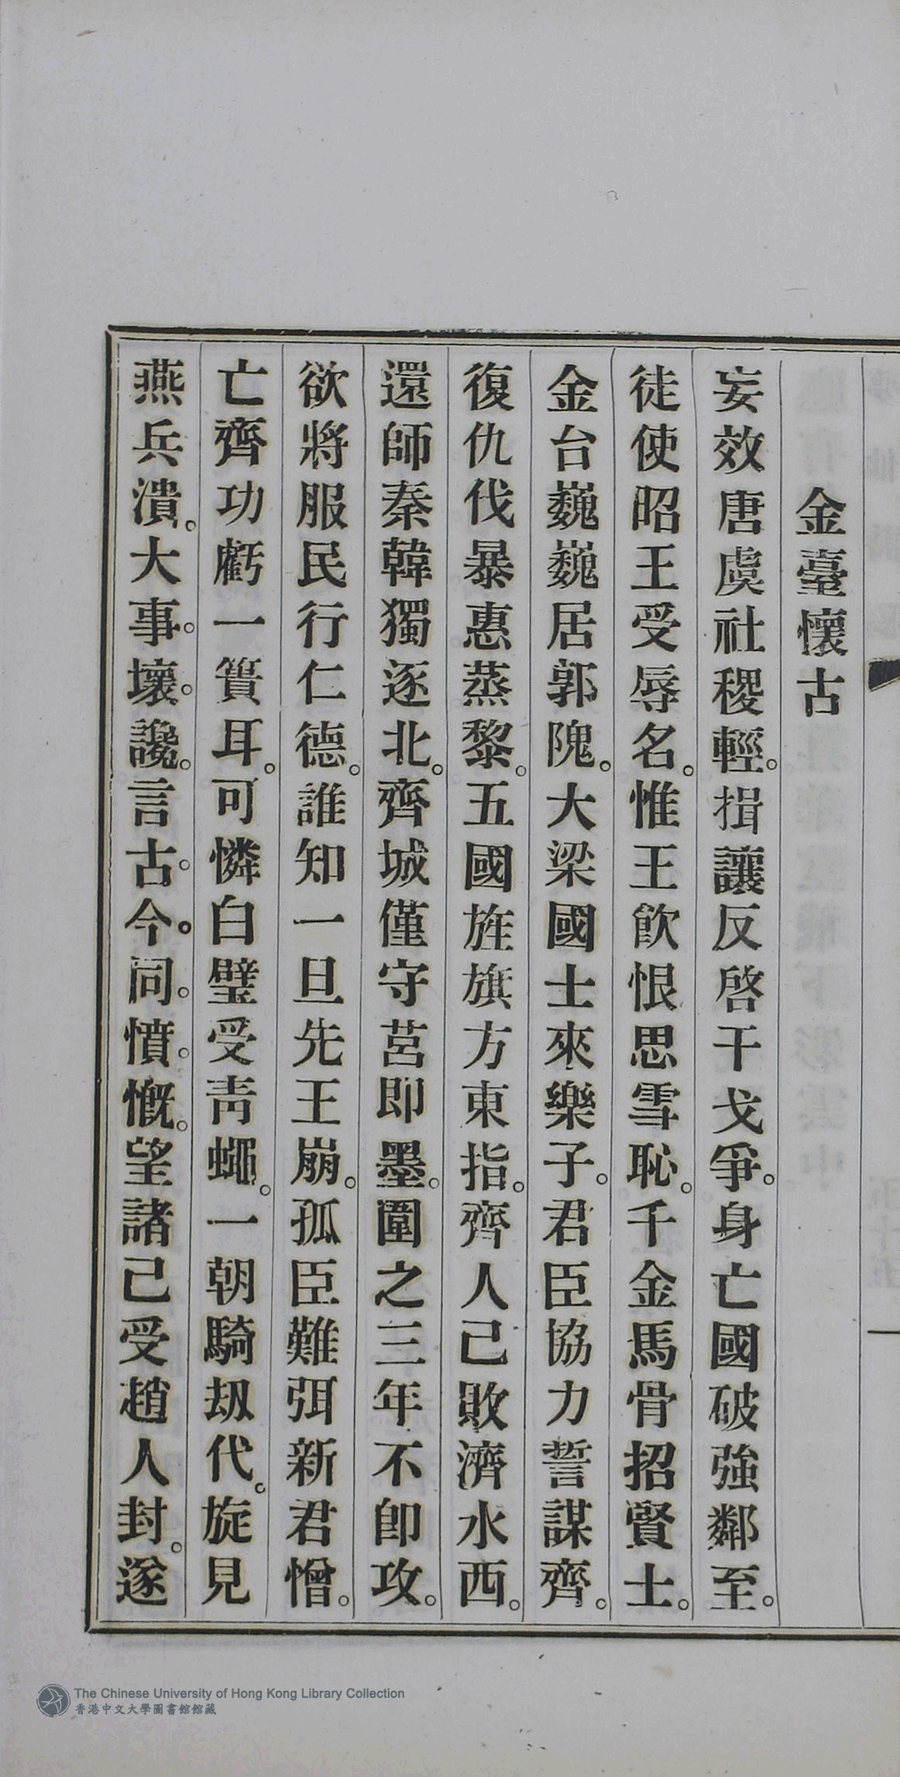 金臺懷古
妄效唐虞社稷輕。揖讓反啓干戈爭。身亡國破強鄰至。
徒使昭王受辱名。惟王飮恨思雪恥。千金馬骨招賢士。
金台巍巍居郭隗。大梁國士來樂子。君臣協力誓謀齊。
復仇伐暴惠蒸黎。五國旌旗方東指。齊人己敗濟水西。
還師秦韓獨逐北。齊城僅守莒即墨。圍之三年不卽攻。
欲將服民行仁德。誰知一旦先王崩。孤臣難弭新君憎。
亡齊功虧一簣耳。可憐白璧受靑蠅。一朝騎刧代。旋見
燕兵潰。大事。壞。讒。言古。今。同。憤。慨。望諸己受趙人封。遂
The Chinese University of Hong Kong Library Collection
香港中文大學圖書館館藏